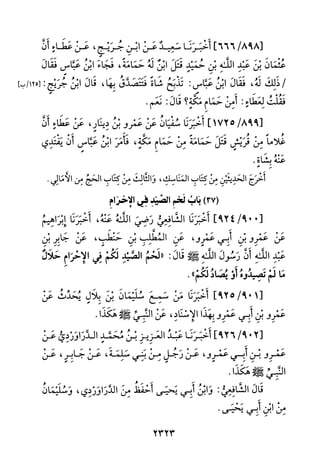 [٦٦٦/٨٩٨] أَخْبَرَنَا سَعِيدٌ عَنْ ابْنِ جُرَيْجٍ، عَنْ عَطَاءٍ أَنَّ
عُثْمَانَ بْنَ عَبْدِ اللَّهِ بْنِ حُمَيْدٍ قَتَلَ ابْنٌ لَهُ حَمَامَةً، فَجَاءَ ابْنَ عَبَّاسٍ فَقَالَ
/ ذَلِكَ لَهُ، فَقَالَ ابْنُ عَبَّاسٍ: تَذْبَحُ شَاةً فَتَتَصَدَّقُ بِهَا، قَالَ ابْنُ جُرَيْجٍ: [١٢٥/ب]
فَقُلْتُ لِعَطَاءٍ: أَمِنْ حَمَامِ مَكَّةَ؟ قَالَ: نَعَم.
[١٧٢٥/٨٩٩] أَخْبَرَنَا سُفْيَانُ عَنْ عَمْرِو بْنِ دِينَارٍ، عَنْ عَطَاءٍ أَنَّ
غُلاماً مِنْ قُرَيْشٍ قَتَلَ حَمَامَةً مِنْ حَمَامِ مَكَّةَ، فَأَمَرَ ابْنُ عَبَّاسٍ أَنْ يَفْتَدِيَ
عَنْهُ بِشَاةٍ.
أَخْرَجَ الْحَدِيثَيْنِ مِنْ كِتَابِ الْمَنَاسِكِ، وَالثَّالِثَ مِنْ كِتَابِ الْحَجِّ مِنَ الأَمَالِي.
(٣٧) بَابُ لَحْمِ الصَّيْدِ فِي الإِحْرَامِ
[٩٢٤/٩٠٠] أَخْبَرَنَا الشَّافِعِيُّ رَضِيَ اللَّهُ عَنْهُ، أَخْبَرَنَا إِبْرَاهِيمُ
عَنْ عَمْرِو بْنِ أَبِي عَمْرٍو، عَنِ الْمُطَّلِبِ بْنِ حَنْطَبٍ، عَنْ جَابِرِ بْنِ
عَبْدِ اللَّهِ أَنَّ رَسُولَ اللَّهِ ﷺ قَالَ: «لَحْمُ الصَّيْدِ لَكُمْ فِي الإِحْرَامِ حَلَالٌ
مَا لَمْ تَصِيدُوهُ أَوْ يُصَادُ لَكُمْ».
[٩٢٥/٩٠١] أَخْبَرَنَا مَنْ سَمِعَ سُلَيْمَانَ بْنَ بِلَالٍ يُحَدِّثُ عَنْ
عَمْرِو بْنِ أَبِي عَمْرٍو بِهَذَا الإِسْنَادِ، عَنْ النَّبِيِّ ﷺ هَكَذَا.
[٩٢٦/٩٠٢] أَخْبَرَنَا عَبْدُ الْعَزِيزِ بْنُ مُحَمَّدٍ الدَّرَاوَرْدِيُّ عَنْ
عَمْرِو بْنِ أَبِي عَمْرٍو، عَنْ رَجُلٍ مِنْ بَنِي سَلِمَةَ، عَنْ جَابِرٍ، عَنْ
النَّبِيِّ ﷺ هَكَذَا.
قَالَ الشَّافِعِيُّ: وَابْنُ أَبِي يَحْيَى أَحْفَظُ مِنَ الدَّرَاوَرْدِي، وَسُلَيْمَانُ
مِنْ ابْنِ أَبِي يَحْيَى.
٢٣٢٣